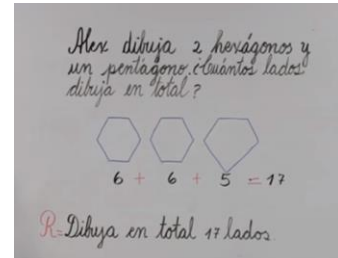 Alex dibuja 2 hexágonos y
un pentágono. ¿Cuántos lados
dibuja en total?
6 + 6 + 5 = 17
R= Dibuja en total 17 lados.